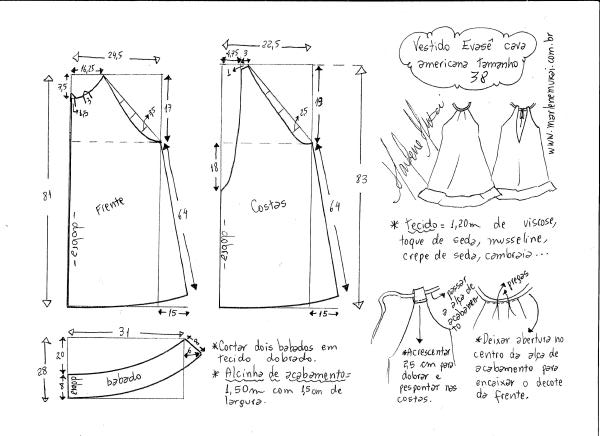 Vestido Evasê cava
americana Tamanho
38
www.marlenemukai.com.br
Marlene Mukai
24,5
16,25
7,5
3
1,5
17
2,5
81
Frente
dobra
64
15
22,5
4,75
3
1
19
2,5
18
83
Costas
dobra
64
15
* Tecido = 1,20m de viscose,
toque de seda, musseline,
crepe de seda, cambraia...
31
28
20
8
8
6
dobra
babado
* Cortar dois babados em
tecido dobrado.
* Alcinha de acabamento =
1,50m com 1,5cm de
largura.
passar
a alça de
acabamento
*Acrescentar
2,5 cm para
dobrar e
pespontar nas
costas.
pregas
*Deixar abertura no
centro da alça de
acabamento para
encaixar o decote
da frente.